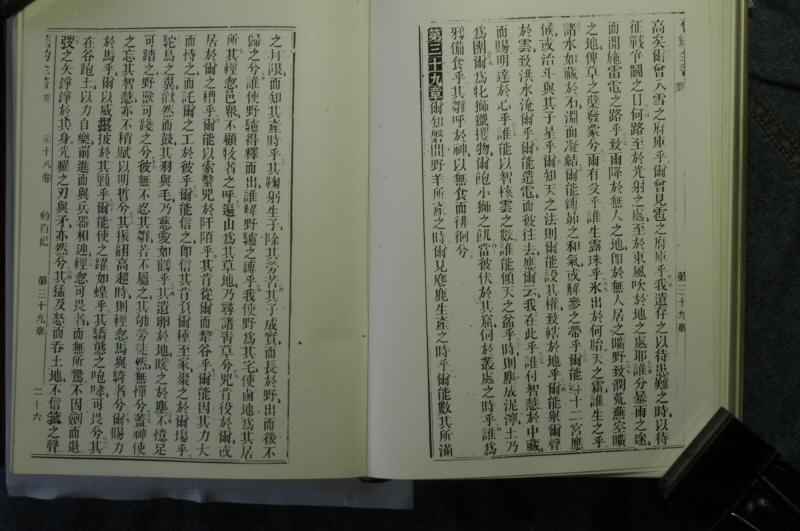 高矣爾曾入雪之府庫乎爾曾見雹之府庫乎我遺存之以待患難之時以待
征戰爭鬭之日何路至於光射之處至於東風吹於地之處耶誰分暴雨之途
而開施雷電之路乎致雨降於無人之地即於無人居之曠野致潤荒蕪空曠
之地俾草之萌發蒙兮雨有父乎誰生露珠乎氷出於何胎天之霜誰生之乎
諸水如藏於石淵面凝結爾能縛昴之和氣或解參之帶乎爾能令十二宮應
候或治斗與其子星乎爾知天之法則爾能設其權致轄於地乎爾能舉爾聲
於雲致洪水淹爾乎爾能遣電而彼往去應爾云我在此乎誰付智慧於中藏
而賜明達於心乎誰能以智核雲之數誰能傾天之盆乎時則塵成泥滓土乃
為團爾為牝獅獵搜物爾飽小獅之飢當彼伏於其窩伺於叢處之時乎誰為
鴉備食乎其雛呼於神以無食而徘徊兮
第三十九章 爾知磐間野羊所產之時乎爾見麀鹿生產之時乎爾能數其所滿
第三十九章
之月限而知其產時乎其鞠躬生子除其勞苦其子成實而長於野出而後不
歸之兮誰使野驢得釋而出誰解野驢之縛乎我使野為其宅使鹵地為其居
所其輕忽邑鬧不顧牧者之呼遍山為其草地乃尋諸青草兮咒肯役於爾或
居於爾之槽乎爾能以索繫咒於阡陌乎其肯從爾而犁谷乎爾能因其力大
而恃之而託爾之工於彼乎爾能信之即信其肯負爾種至家聚之於爾塲乎
駝鳥之翼歡然而鼓其羽與毛乃慈愛如鶴乎其遺卵於地暖之於塵不憶足
可踏之野獸可踐之兮彼無不忍其雛若不屬之其劬勞徒然無憚兮蓋神使
之忘其智慧亦不稍賦以明哲兮其振翮高超時則輕忽馬與騎者兮爾賜力
於馬乎爾以威鬛披於其頸乎爾能使之躍如蝗乎其驕態之咆哮可畏兮其
在谷跑土以力自樂前進而與兵器相迎輕忽可畏者而無所驚不因劍而退
弢之矢錚錚於其身光耀之刃與矛亦然兮其猛及怒而吞土地不信箛之聲
第十八卷 約百記 第三十九章 二十六